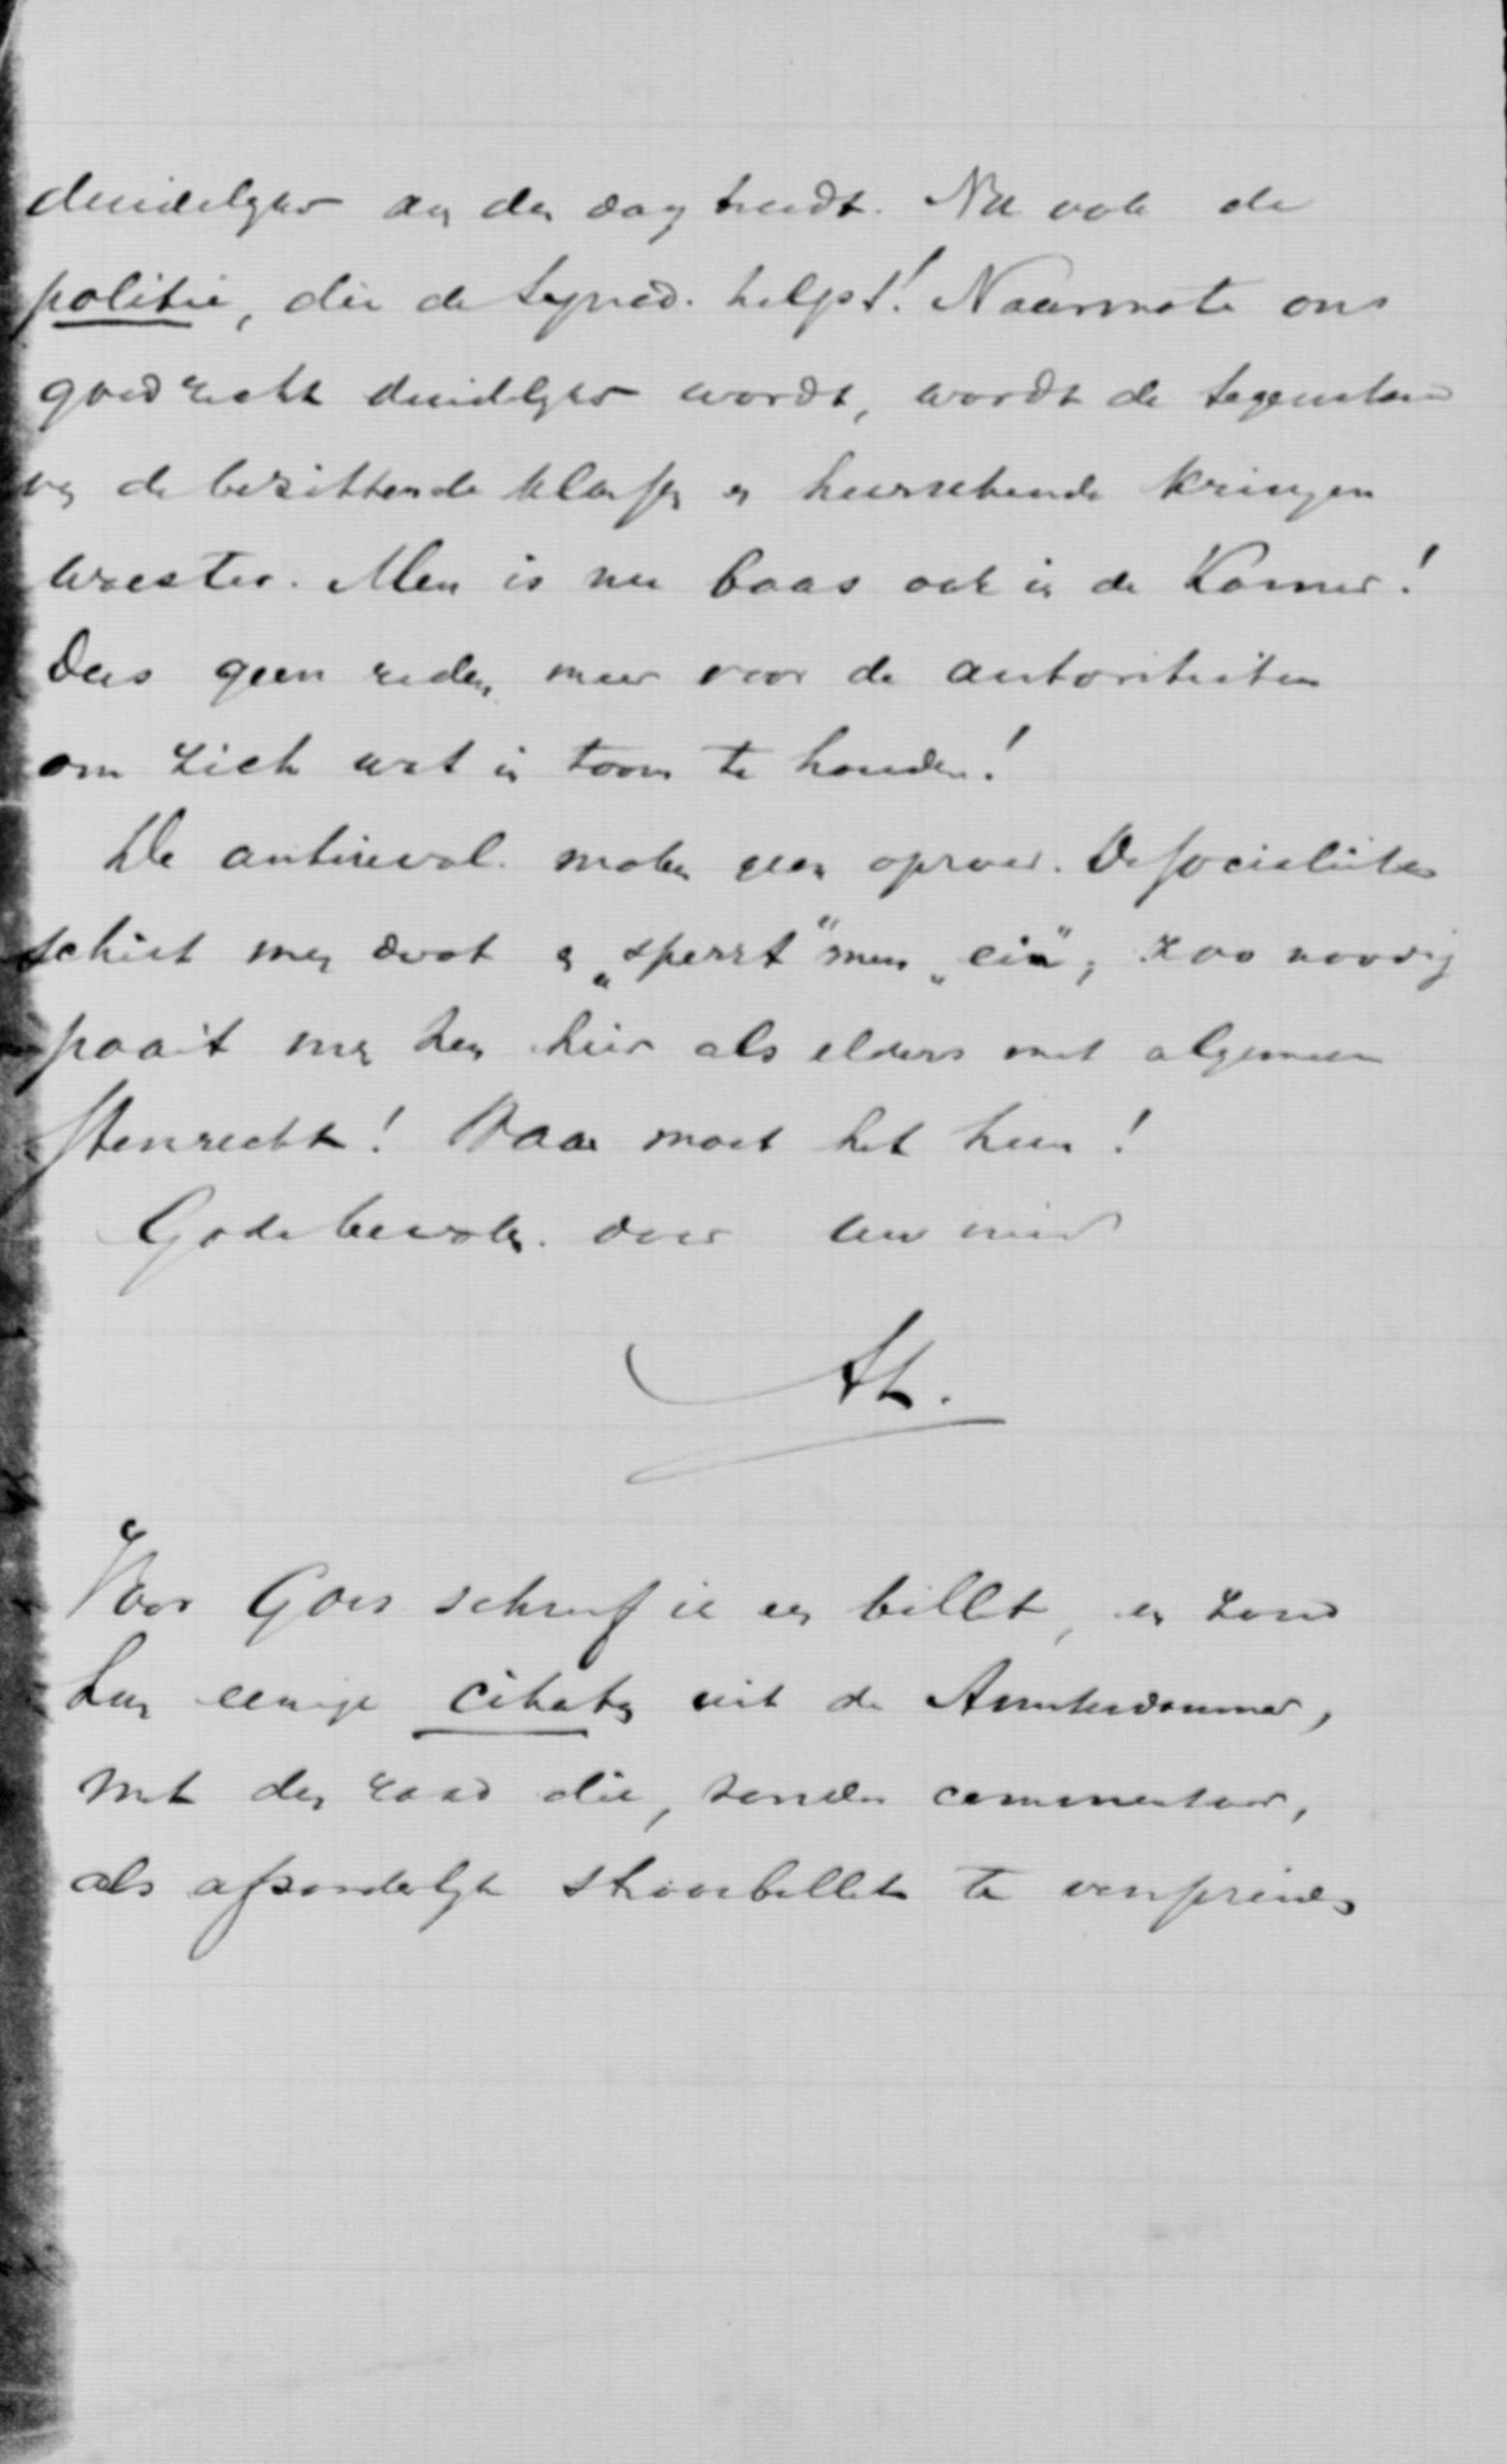 duidelijker aan den dag treedt. Nu ook de
politie, die de synod. helpt! Naarmate ons
goed recht duidelijker wordt, wordt de tegenstand
van de bezittende klassen en heerschende kringen
woester. Men is nu baas ook in de Kamer!
Dus geen reden meer voor de autoriteiten
om zich wat in toom te houden!
De antirevol. maken geen oproer. De socialisten
schiet men dood en „sperrt” men „ein”, zoo noodig
paait men hen hier als elders met algemeen
stemrecht! Daar moet het heen!
Gode bevolen. door uw vriend
Voor Goes schreef ik een billet, en zond
hun eenige citaten uit de Amsterdammer,
met den raad die, zonder commentaar,
als afzonderlijke strooibilletten te verspreiden